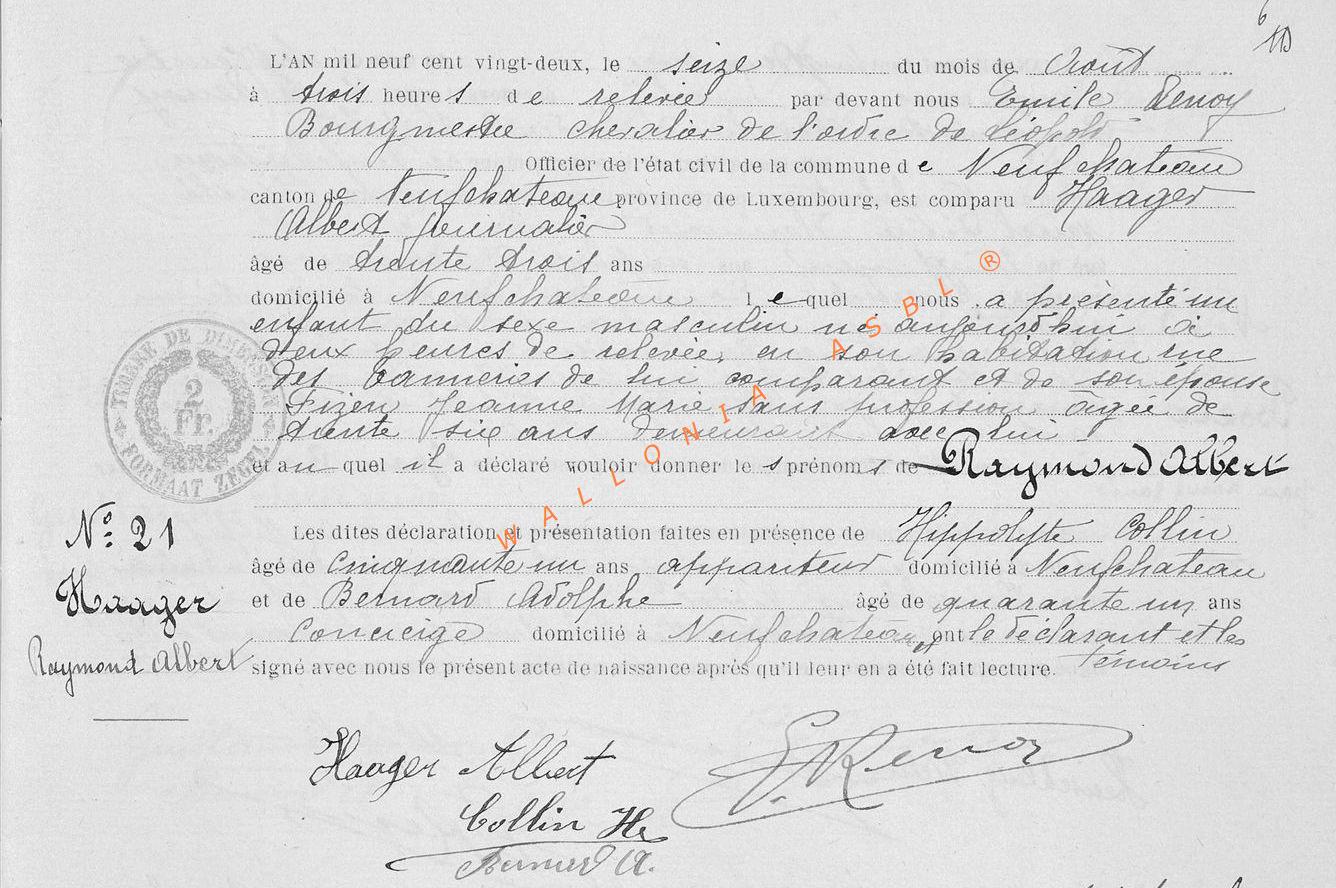 6
L'AN mil neuf cent vingt-deux, le seize du mois de Août
à trois heures de relevée par devant nous Emile Renoy
Bourgmestre chevalier de l'ordre de Léopold
Officier de l'état civil de la commune de Neufchateau
canton de Neufchateau province de Luxembourg, est comparu Haager
Albert journalier
âgé de trente trois ans
domicilié à Neufchateau lequel nous a présenté un
enfant du sexe masculin né aujourd'hui à
deux heures de relevée, en son habitation rue
des tanneries de lui comparant et de son épouse
Fizen Jeanne Marie sans profession âgée de
trente six ans demeurant avec lui
et auquel il a déclaré vouloir donner les prénoms de Raymond Albert
TIMBRE DE DIMENSION
2
Fr.
FORMAAT ZEGEL
WALLONIA ASBL ®
N° 21
Haager
Raymond Albert
Les dites déclaration et présentation faites en présence de Hippolyte Collin
âgé de cinquante un ans appariteur domicilié à Neufchateau
et de Bernard Adolphe âgé de quarante un ans
Concierge domicilié à Neufchateau, ont le déclarant et les
témoins
signé avec nous le présent acte de naissance après qu'il leur en a été fait lecture.
Haager Albert
E Renoy
Collin He
Bernard A.